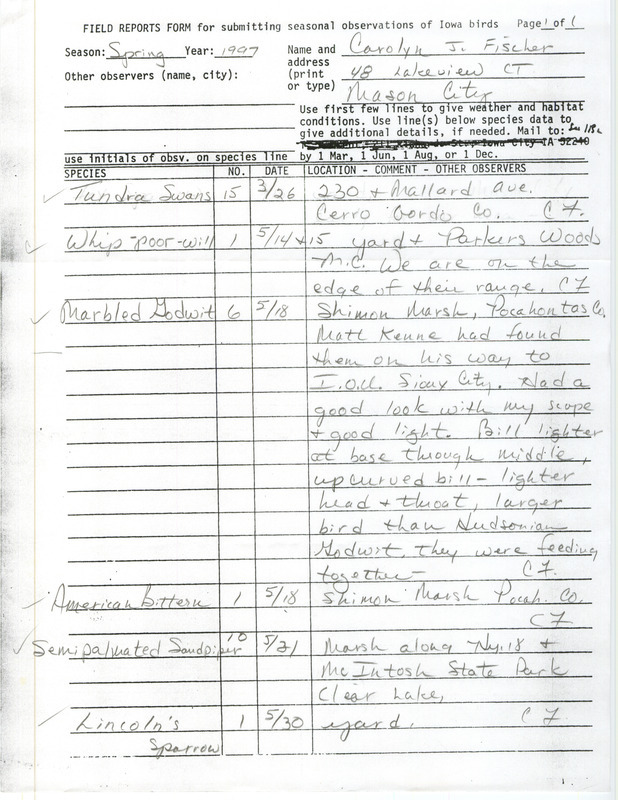 FIELD REPORTS FORM for submitting seasonal observations of Iowa birds Page 1 of 1
Season: Spring Year: 1997 Name and Carolyn J. Fischer
address
Other observers (name, city): (print 48 Lakeview CT.
or type) Mason City
Use first few lines to give weather and habitat
conditions. Use line(s) below species data to
give additional details, if needed. Mail to:
Iowa City IA 52240
use initials of obsv. on species line by 1 Mar, 1 Jun, 1 Aug, or 1 Dec.
SPECIES NO. DATE LOCATION - COMMENT - OTHER OBSERVERS
Tundra Swans 15 3/26 230 + Mallard Ave.
Cerro Gordo Co. CF.
Whip-poor-will 1 5/14 +15 yard + Parkers Woods
M.C. We are on the
edge of their range. CF
Marbled Godwit 6 5/18 Shimon Marsh, Pocahontas Co.
Matt Kenne had found
them on his way to
I.O.U. Sioux City. Had a
good look with my scope
+ good light. Bill lighter
at base through middle,
upcurved bill - lighter
head + throat, larger
bird than Hudsonian
Godwit. They were feeding
together- CF.
American Bittern 1 5/18 Shimon Marsh Pocah. Co.
CF
Semipalmated Sandpiper 10 5/21 Marsh along Hy. 18 +
McIntosh State Park
Clear Lake,
Lincoln's 1 5/30 yard. CF
Sparrow